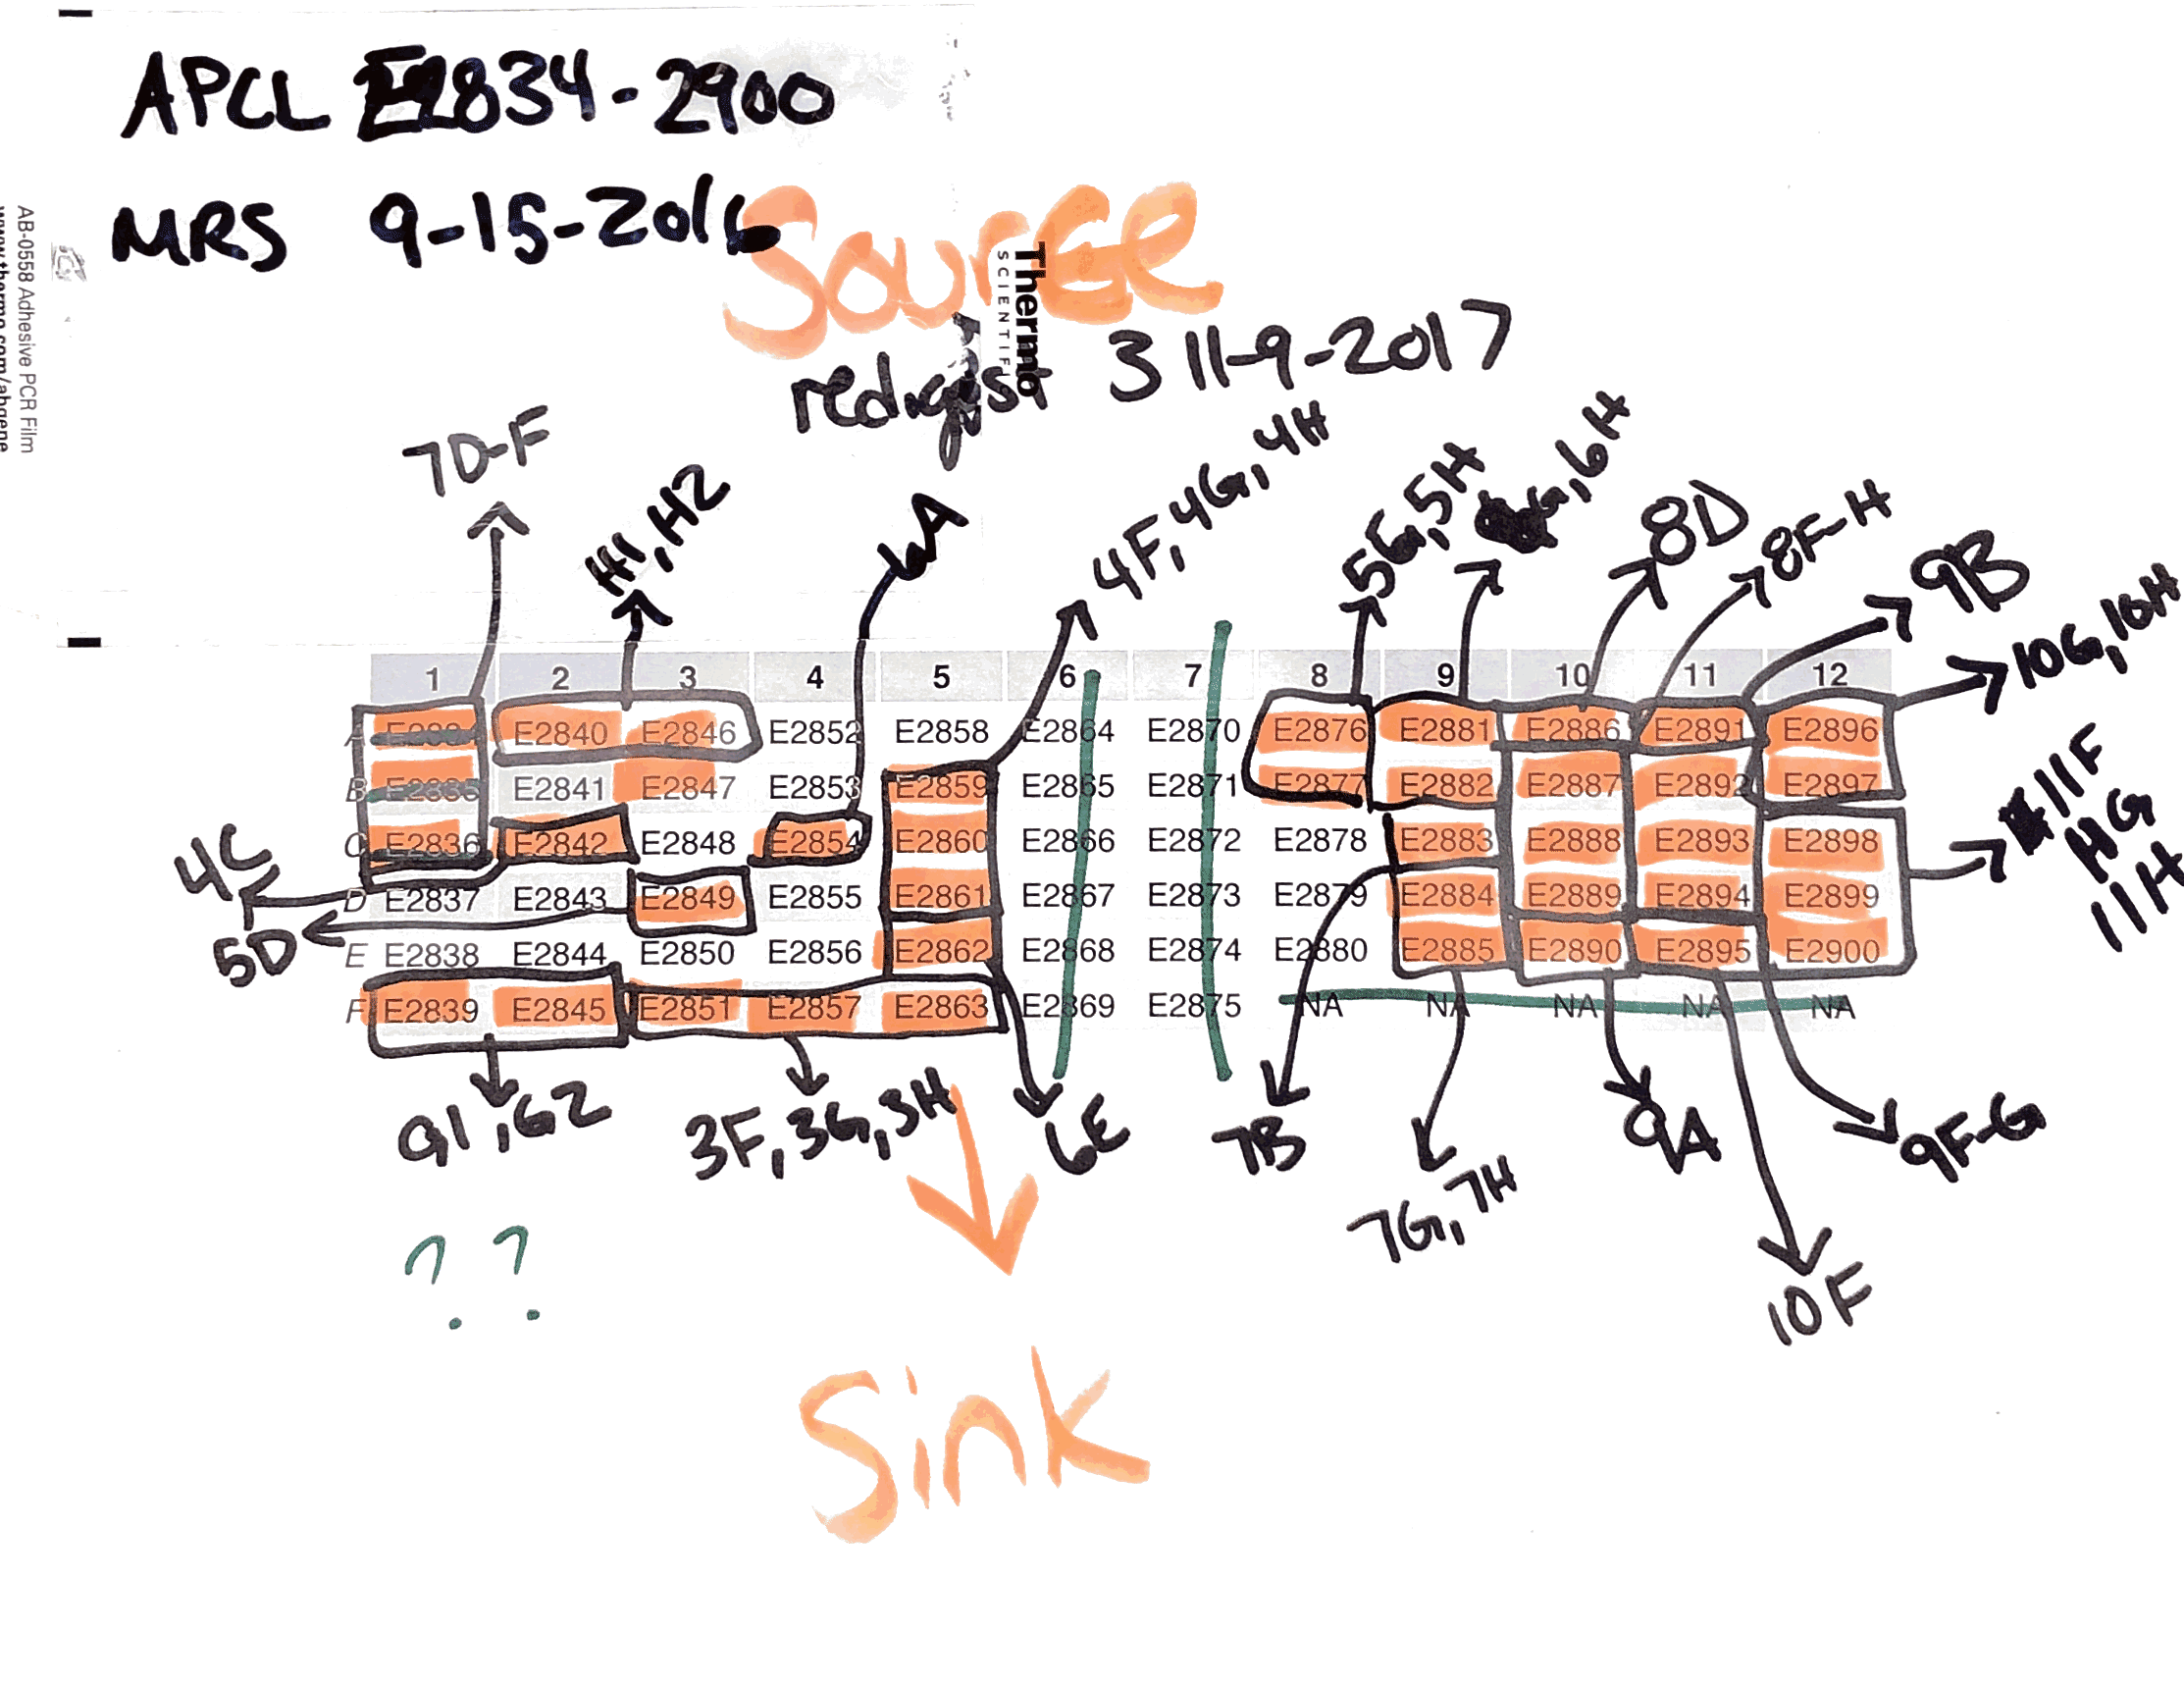 APCL E2834-2900
MRS 9-15-2016
AB-0558 Adhesive PCR Film
www.thermo.com/abgene
Source
Thermo
SCIENTIF
redigest 3 11-9-2017
7D-F
H1, H2
6A
4F, 4G, 4H
5G, 5H
G, 6H
8D
8F-H
9B
10G, 10H
1 2 3 4 5 6 7 8 9 10 11 12
A E2840 E2846 E2852 E2858 E2864 E2870 E2876 E2881 E2886 E2891 E2896
B E2835 E2841 E2847 E2853 E2859 E2865 E2871 E2877 E2882 E2887 E2892 E2897
C E2836 E2842 E2848 E2854 E2860 E2866 E2872 E2878 E2883 E2888 E2893 E2898
D E2837 E2843 E2849 E2855 E2861 E2867 E2873 E2879 E2884 E2889 E2894 E2899
E E2838 E2844 E2850 E2856 E2862 E2868 E2874 E2880 E2885 E2890 E2895 E2900
F E2839 E2845 E2851 E2857 E2863 E2869 E2875 NA NA NA NA NA
4C
5D
11F
11G
11H
G1, G2
3F, 3G, 3H
6E
7B
7G, 7H
9A
9F-G
10F
? ?
Sink